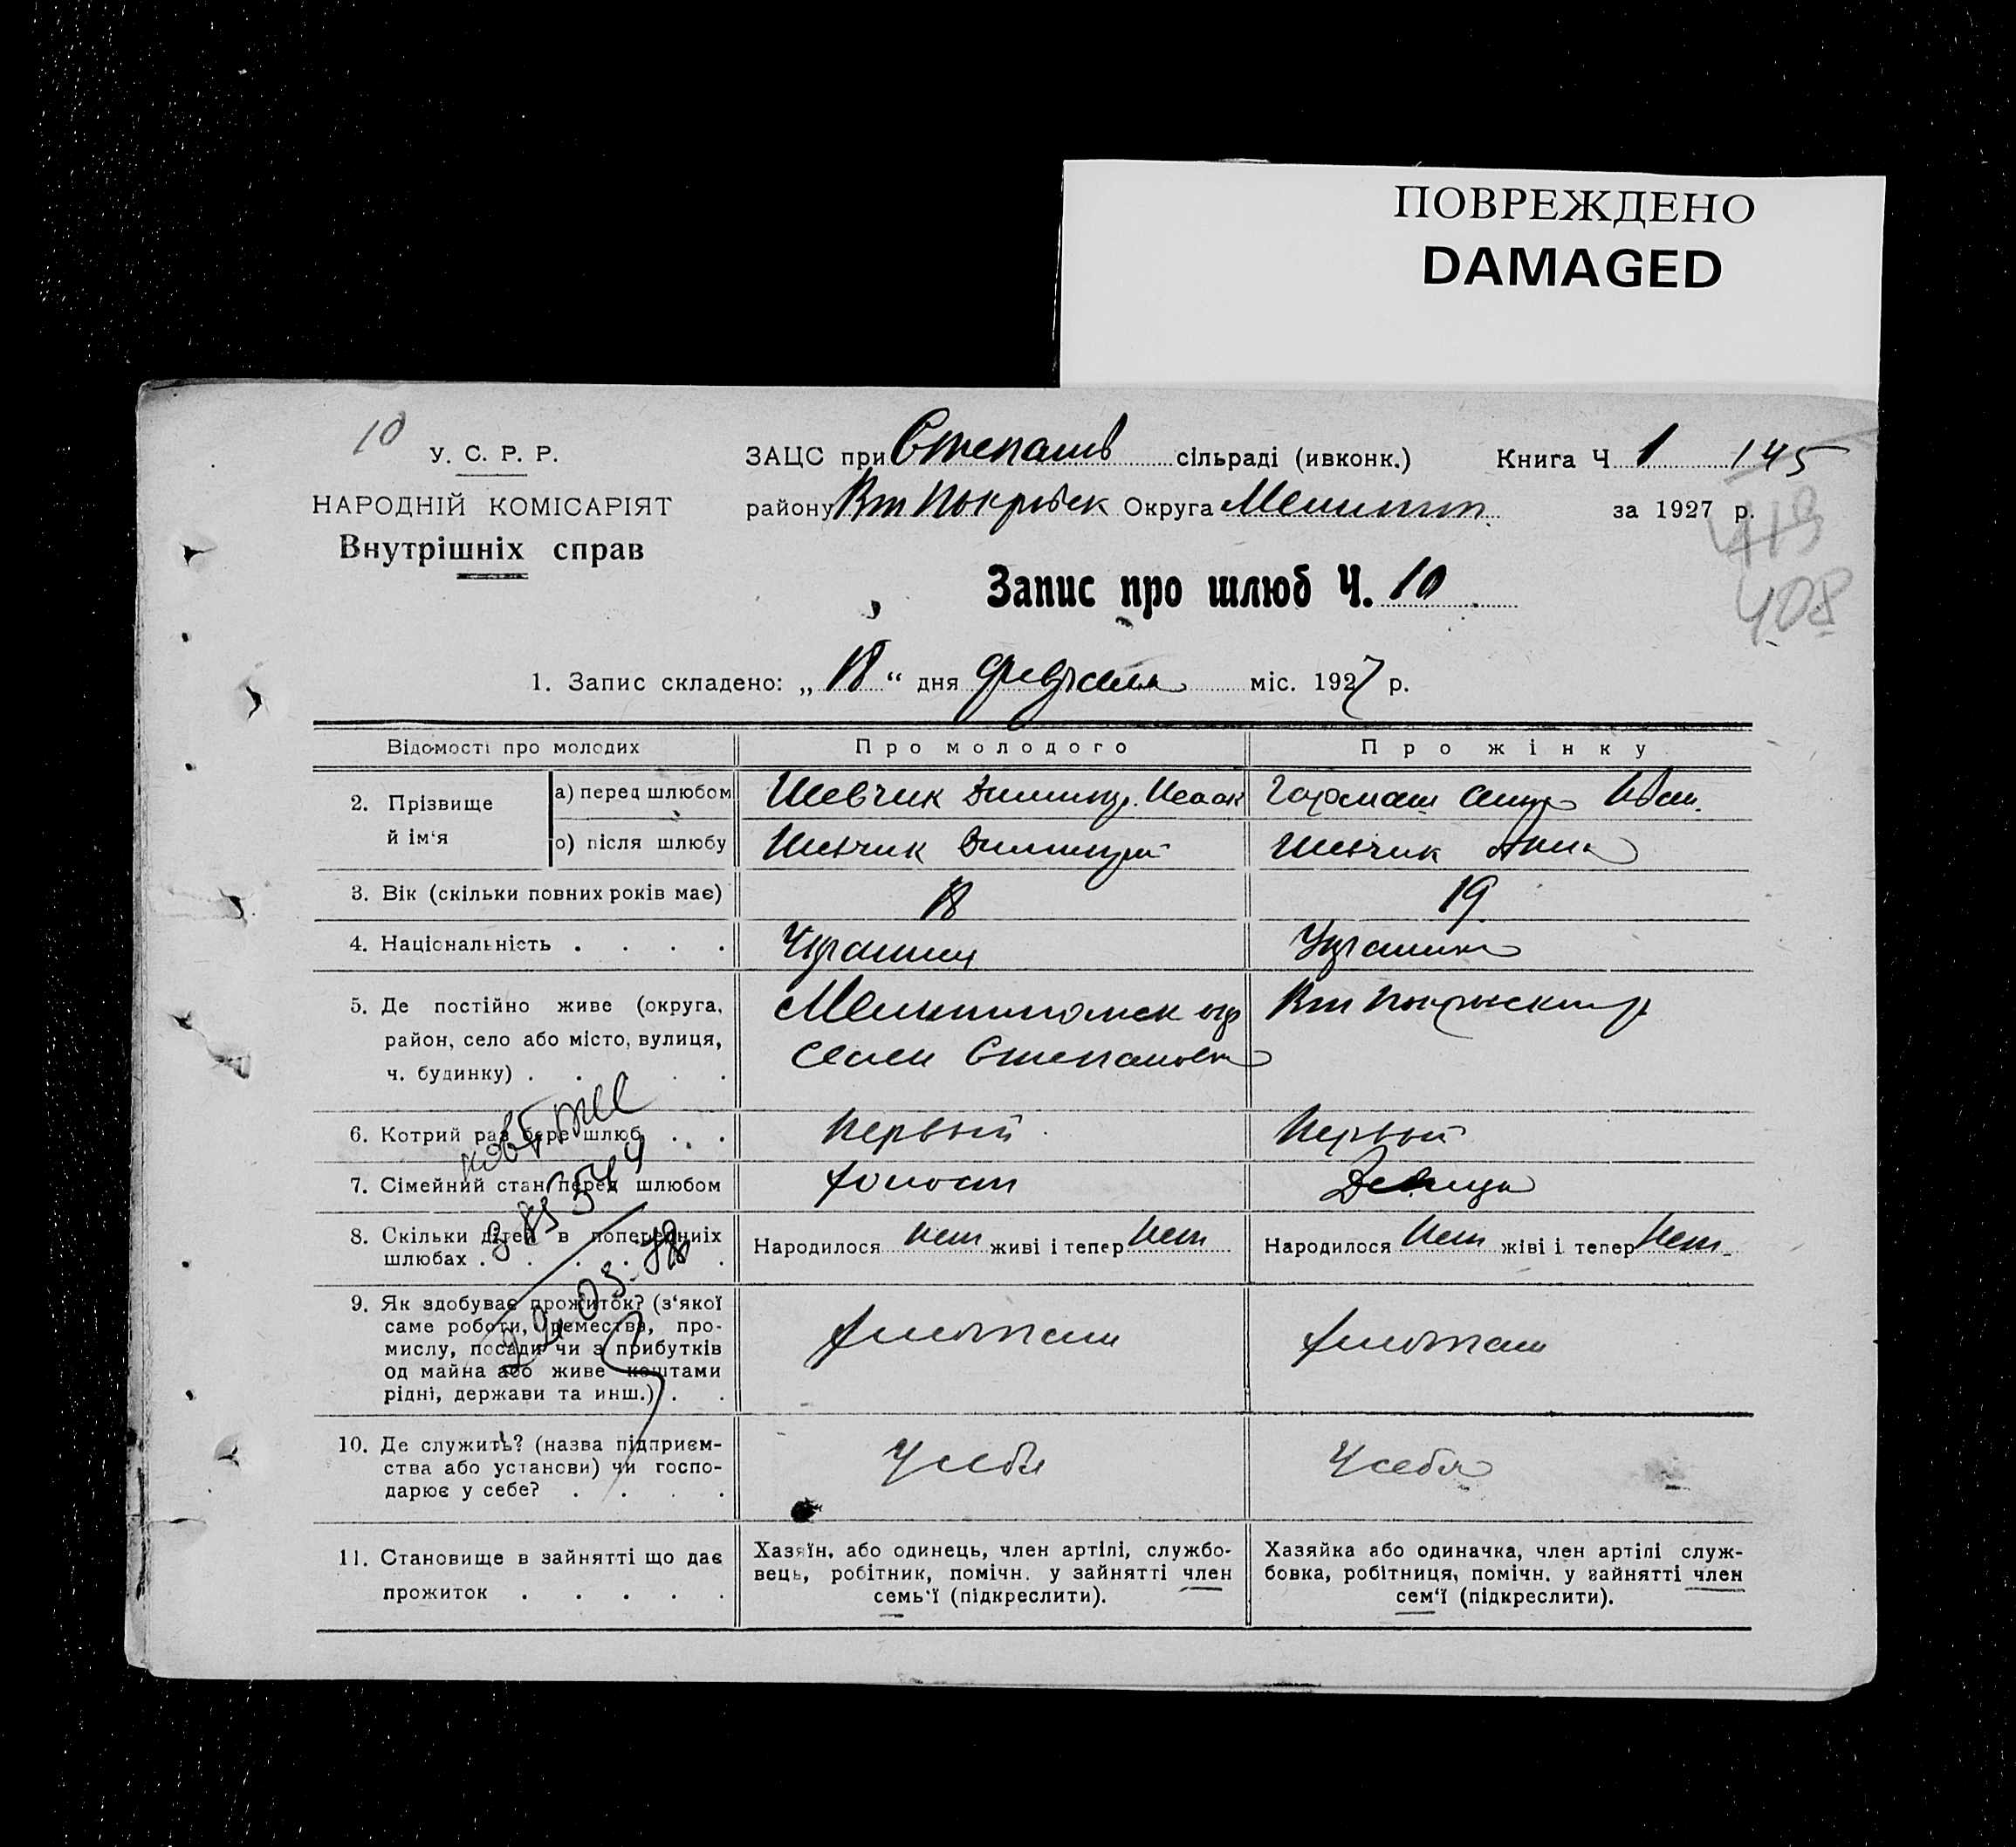 ПОВРЕЖДЕНО
DAMAGED
10
У. С. Р. Р.
НАРОДНІЙ КОМІСАРІЯТ
Внутрішніх справ
ЗАЦС при Степанів сільраді (ивконк.) Книга Ч 1 145
району Вт Покровск Округа Мелитоп. за 1927 р.
413
408
Запис про шлюб Ч. 10
1. Запис складено: „ 18 “ дня февраля міс. 1927 р.
Відомості про молодих Про молодого Про жінку
2. Прізвище й ім‘я
а) перед шлюбом Шевчик Димитр. Исаак Гармаш Анна Иван.
о) після шлюбу Шевчик Димитрий Шевчик Анна
3. Вік (скільки повних років має) 18 19
4. Національність . . . . Украинец Украинка
5. Де постійно живе (округа, Мелитопольск окр Вт Покровский р
район, село або місто, вулиця, село Степановка
ч. будинку) . . . . .
6. Котрий раз бере шлюб . . . Первый Первый
7. Сімейний стан перед шлюбом Холост Девица
8. Скільки дітей в попередниіх Народилося Нет живі і тепер Нет Народилося Нет живі і тепер Нет
шлюбах . . . . . .
9. Як здобуває прожиток? (з‘якої
саме роботи, ремества, про-
мислу, посади чи з прибутків хлебопаш хлебопаш
од майна або живе коштами
рідні, держави та инш.) . .
10. Де служить? (назва підприєм-
ства або установи) чи госпо- У себя У себя
дарює у себе? . . . .
11. Становище в зайнятті що дає
прожиток . . . . .
Хазяїн, або одинець, член артілі, службо-
вець, робітник, помічн. у зайнятті член
семь‘ї (підкреслити).
Хазяйка або одиначка, член артілі служ-
бовка, робітниця, помічн. у зайнятті член
сем‘ї (підкреслити).
22.03.78